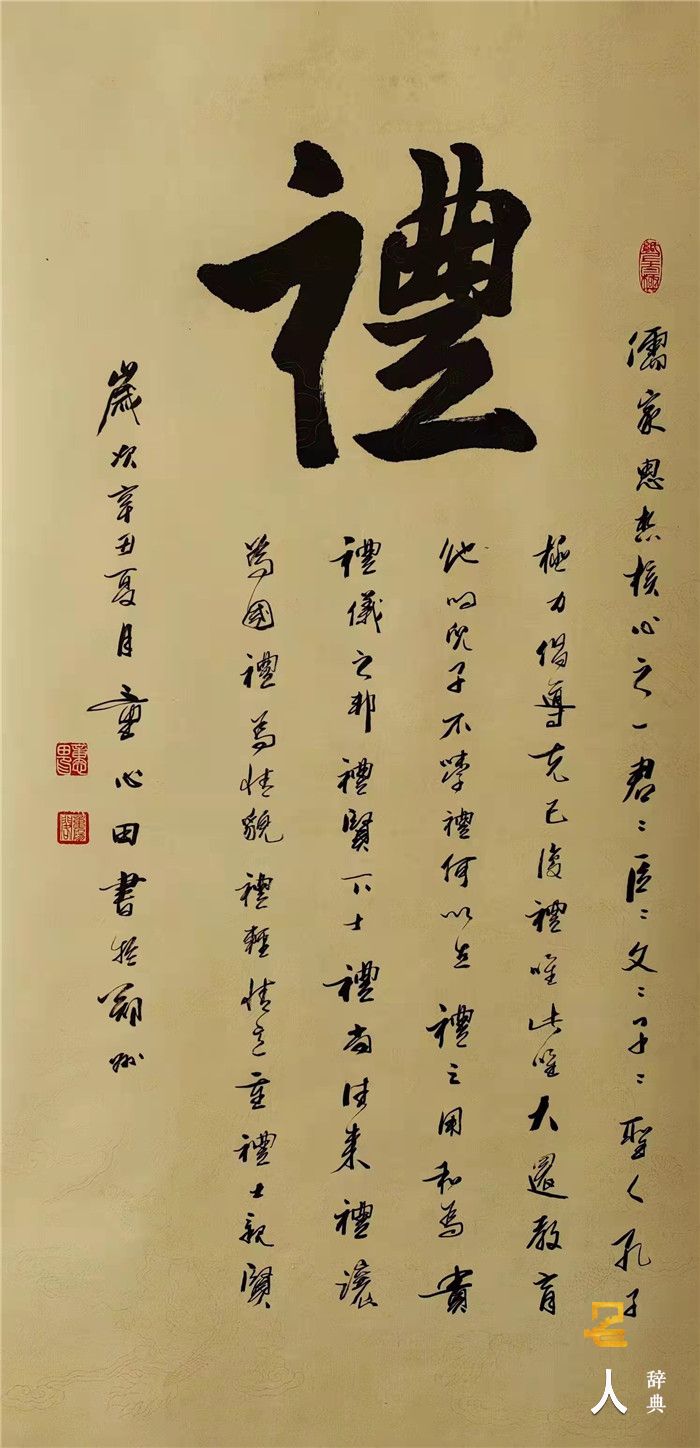 禮
儒家思想核心之一君〻臣〻父〻子〻聖人孔子
極力倡導克己復禮唯此唯大還教育
他的兒子不學禮何以立禮之用和為貴
禮儀之邦禮賢下士禮尚往來禮讓
為國禮為情貌禮輕情意重禮士親賢
歲次辛丑夏月董心田書於朔州
人
辞典